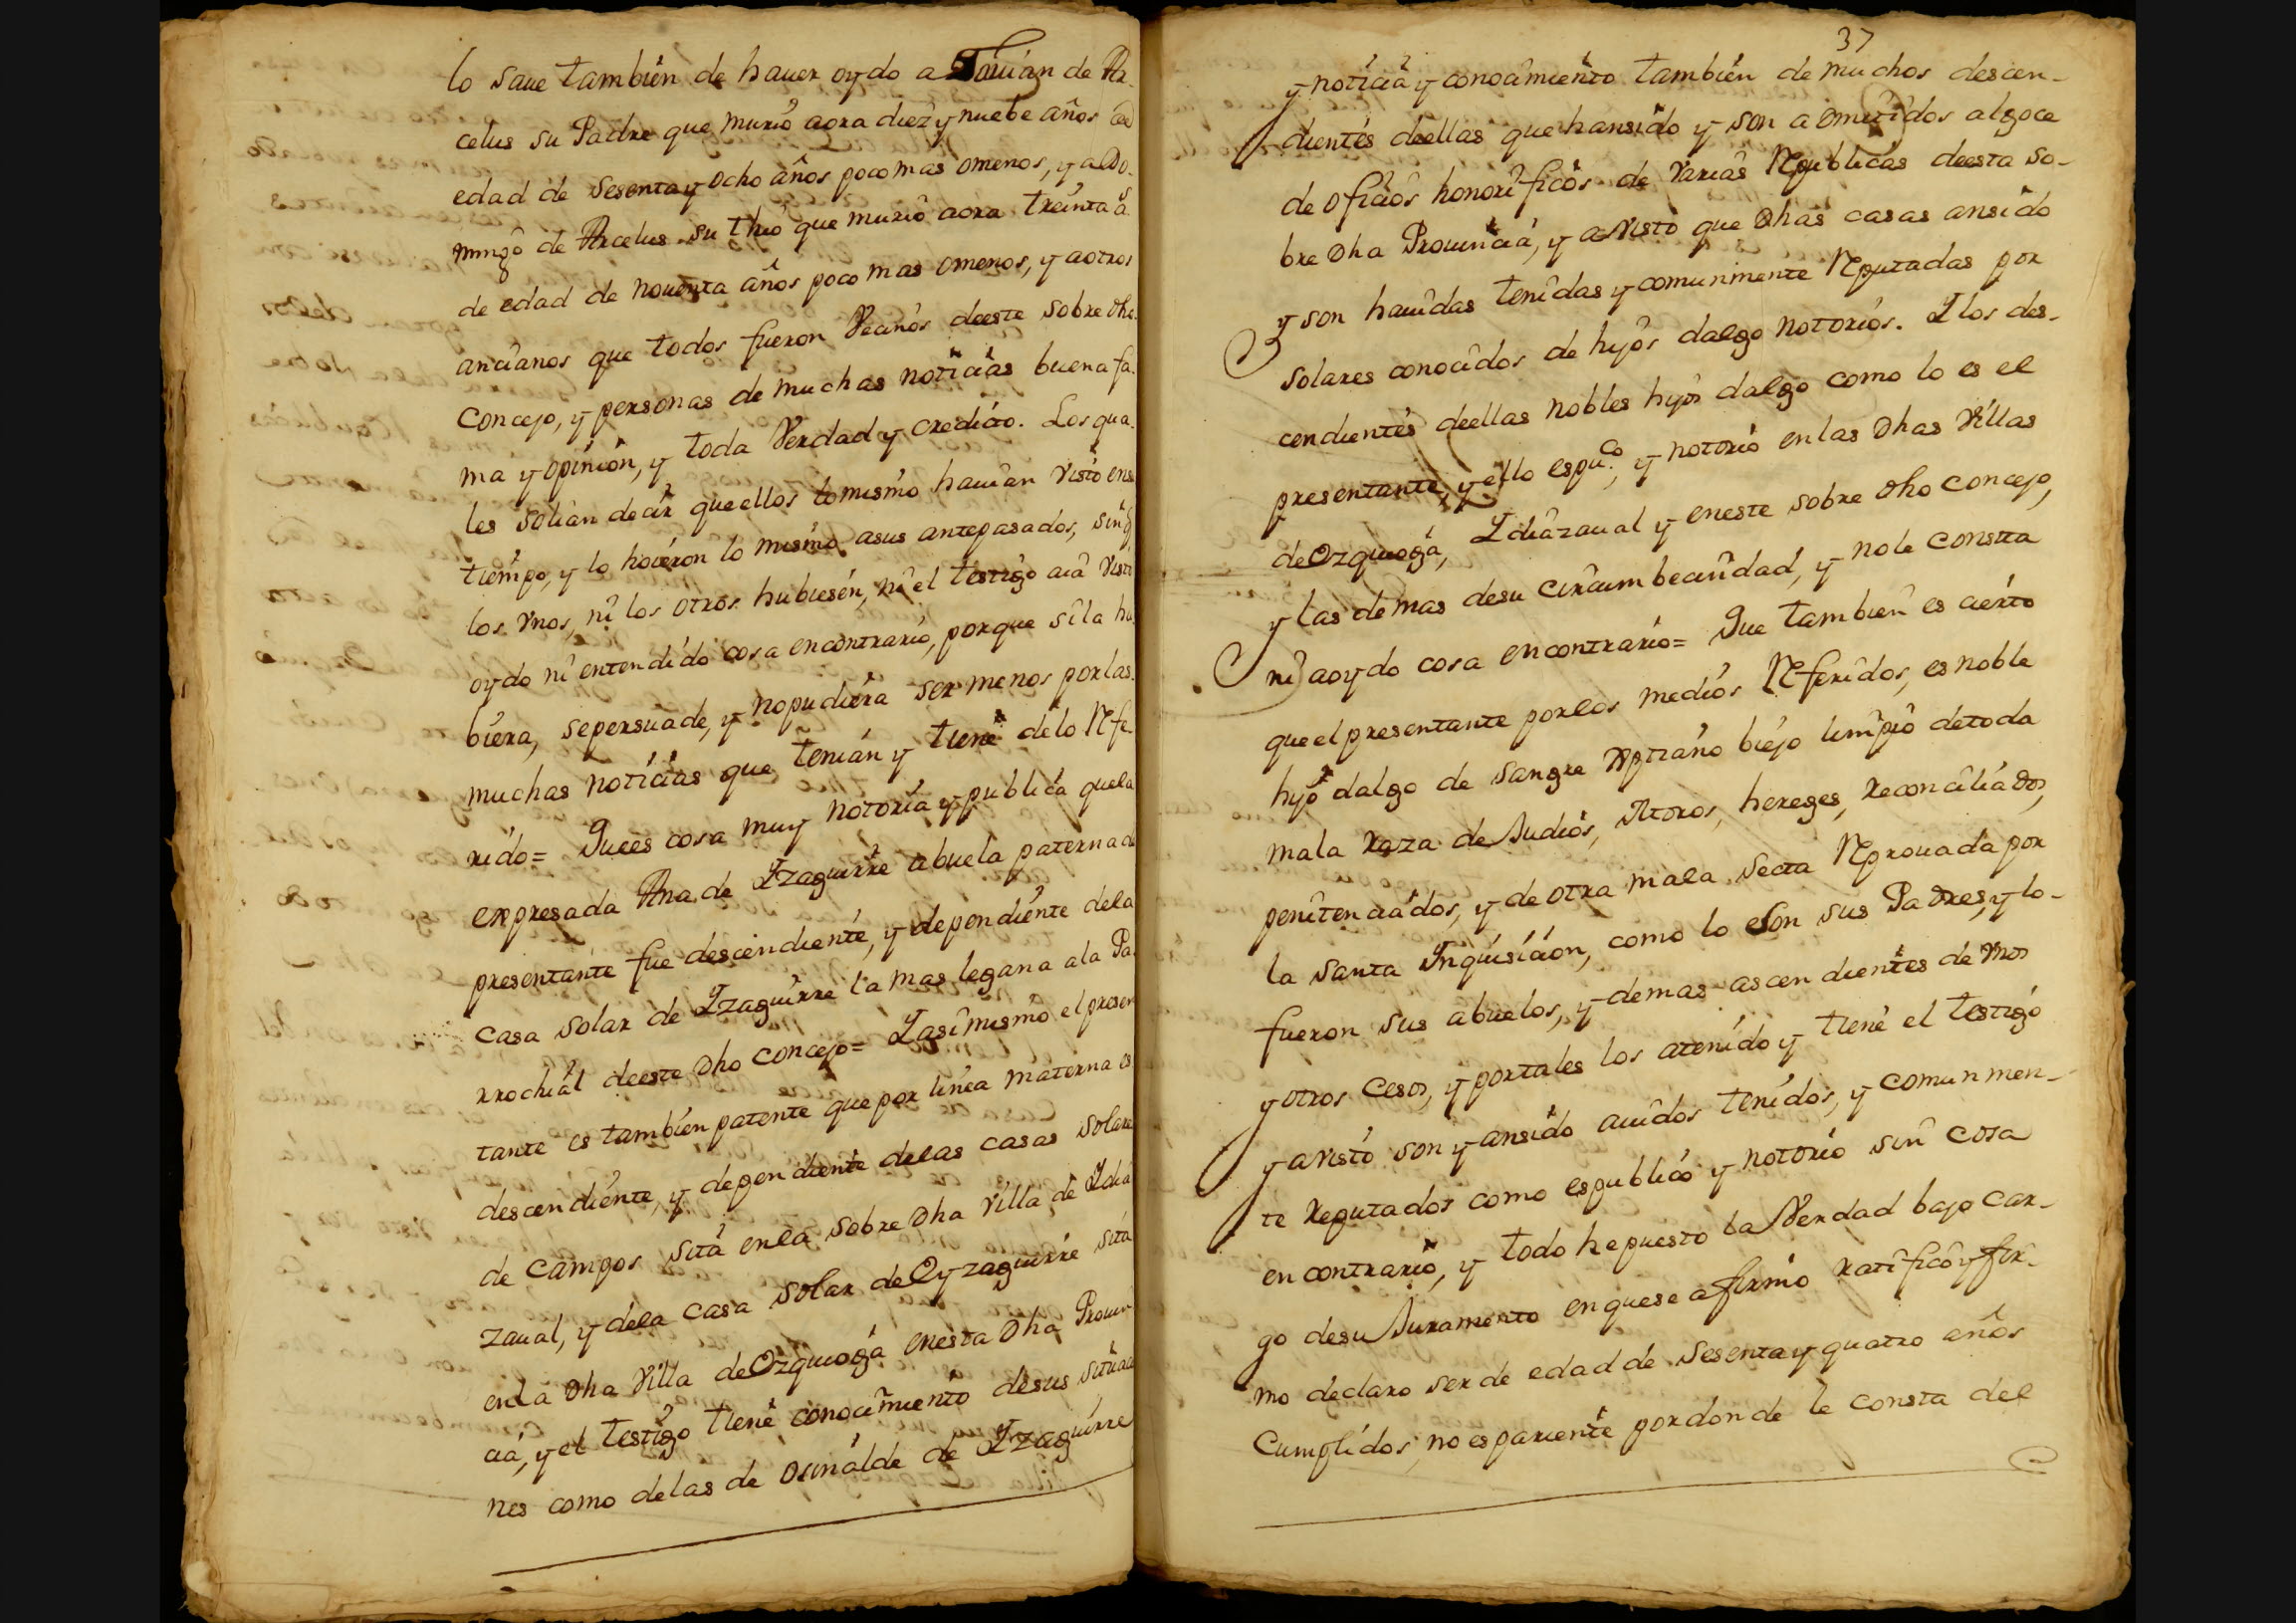 lo saue tambien de hauer oydo a de Ar-
celus su Padre que murio aora diez y nuebe años
edad de sesenta y ocho años poco mas omenos, y a Do-
mingo de Arcelus su thio que murio aora treinta a.s
de edad de nouenta años poco mas omenos, y aotros
ancianos que todos fueron Vecinos deeste sobre dho
Concejo, y personas de muchas noticias buena fa-
ma y opinion, y toda Verdad y credito. Los qua-
les solian decir queellos lo mismo hauian visto ensu
tiempo, y lo hoieron lo mismo asus antepasados, sin q
los vnos, ni los otros hubiesen, ni el testigo aia visto
oydo ni entendido cosa encontrario, porque si la hu-
biera, sepersuade, y nopudiera ser menos por las
muchas noticias que tenian y tiene delo Rfe-
rido= Quees cosa muy notoria y publica quela
expresada Ana de Yzaguirre abuela paterna del
presentante fue descendiente, y dependiente dela
casa solar de Yzaguirre la mas legana ala Pa-
rrochial deeste dho concejo= Yasimismo el presen
tante es tambien patente que por linea materna es
descendiente, y dependiente delas casas solare
de Campos sita enla sobre dha Villa de Ydia
zaual, y dela casa solar de Oyzaguirre sita
enla dha Villa de Ozquioga enesta dha Prouin
cia, y el testigo tiene conocimiento desus situacio
nes como delas de Osinalde de Yzaguirre
37
y noticia y conocimiento tambien de muchos descen-
dientes deellas que hansido y son a omitidos algoce
de oficios honorificos de varias Rpublicas deesta so-
bre dha Prouincia, y avisto que dhas casas ansido
y son hauidas tenidas y comunmente Rputadas por
solares conocidos de hijos dalgo notorios. Y los des-
cendientes deellas nobles hijos dalgo como lo es el
presentante, y ello espu.co, y notorio enlas dhas Villas
de Ozquioga, Ydiazaual y eneste sobre dho concejo,
y las demas desu circumbecindad, y nole consta
ni aoydo cosa encontrario= Que tambien es cierto
queel presentante porlos medios Rferidos, es noble
hijo dalgo de sangre Xptiano biejo limpio detoda
mala raza de Judios, Moros, hereges, reconciliados,
penitenciados, y de otra mala secta Rprouada por
la santa Inquisicion, como lo eson sus Padres, y lo-
fueron sus abuelos, y demas ascendientes de vnos
y otros cesos, y portales los atenido y tiene el testigo
y avisto son y ansido auidos tenidos, y comunmen-
te reputados como espublico y notorio sin cosa
en contrario, y todo hepuesto la Verdad bajo car-
go desu Juramento enquese afirmo ratifico y fir-
mo declaro ser de edad de sesenta y quatro años
Cumplidos, no espariente pordonde le consta del